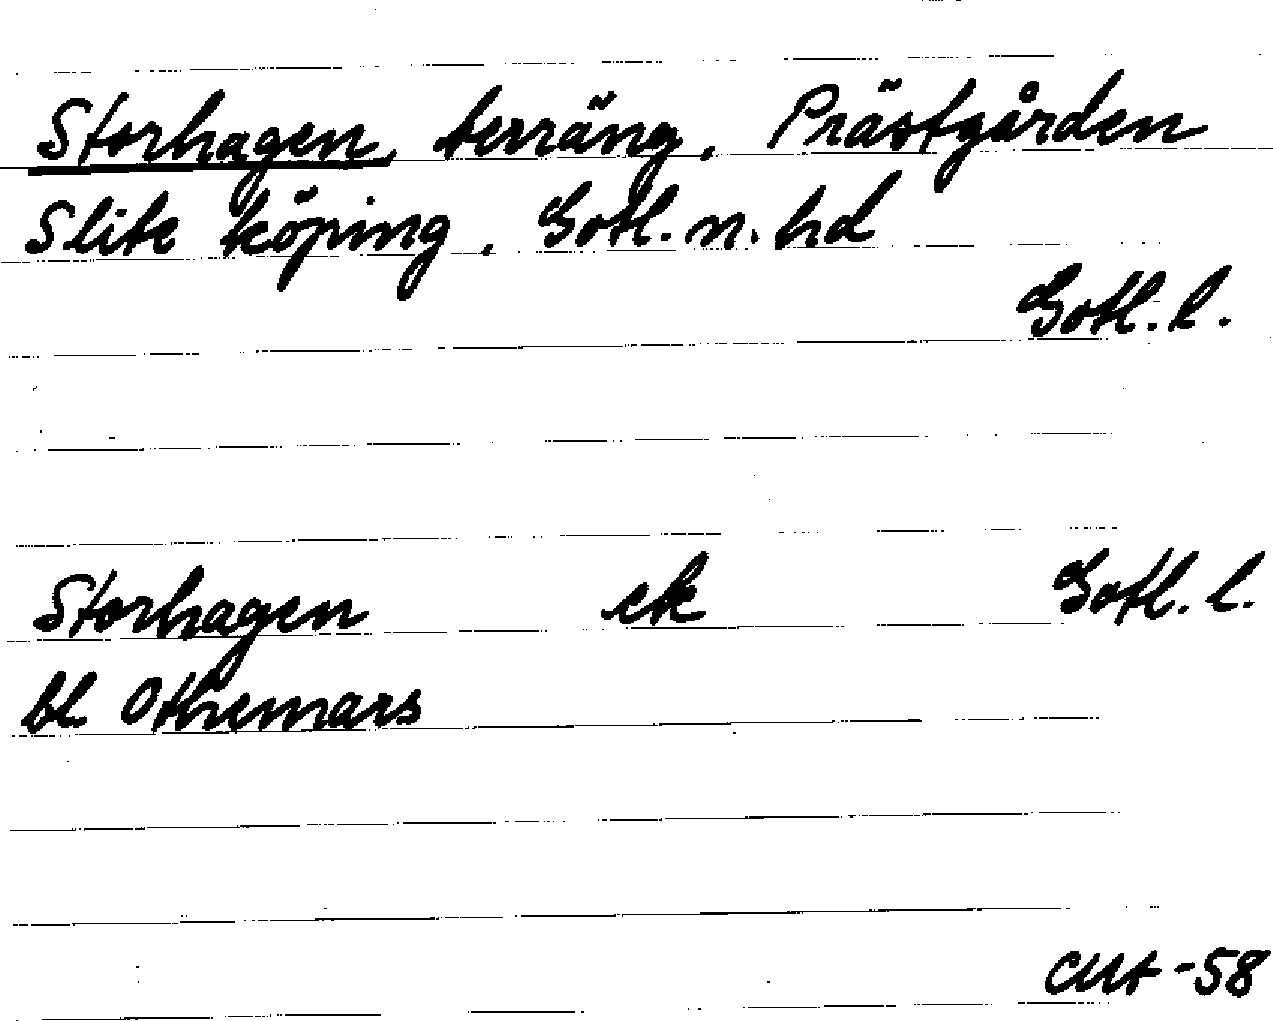 Storhagen, terräng, Prästgården
Slite köping, Gotl. n. hd
Gotl. l.
Storhagen ek Gotl. l.
bl Othemars
CMt -58